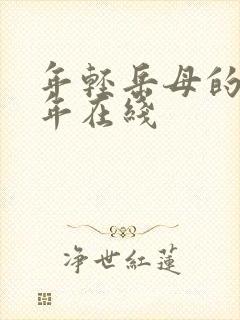 年轻岳母的
年在线
净世红莲